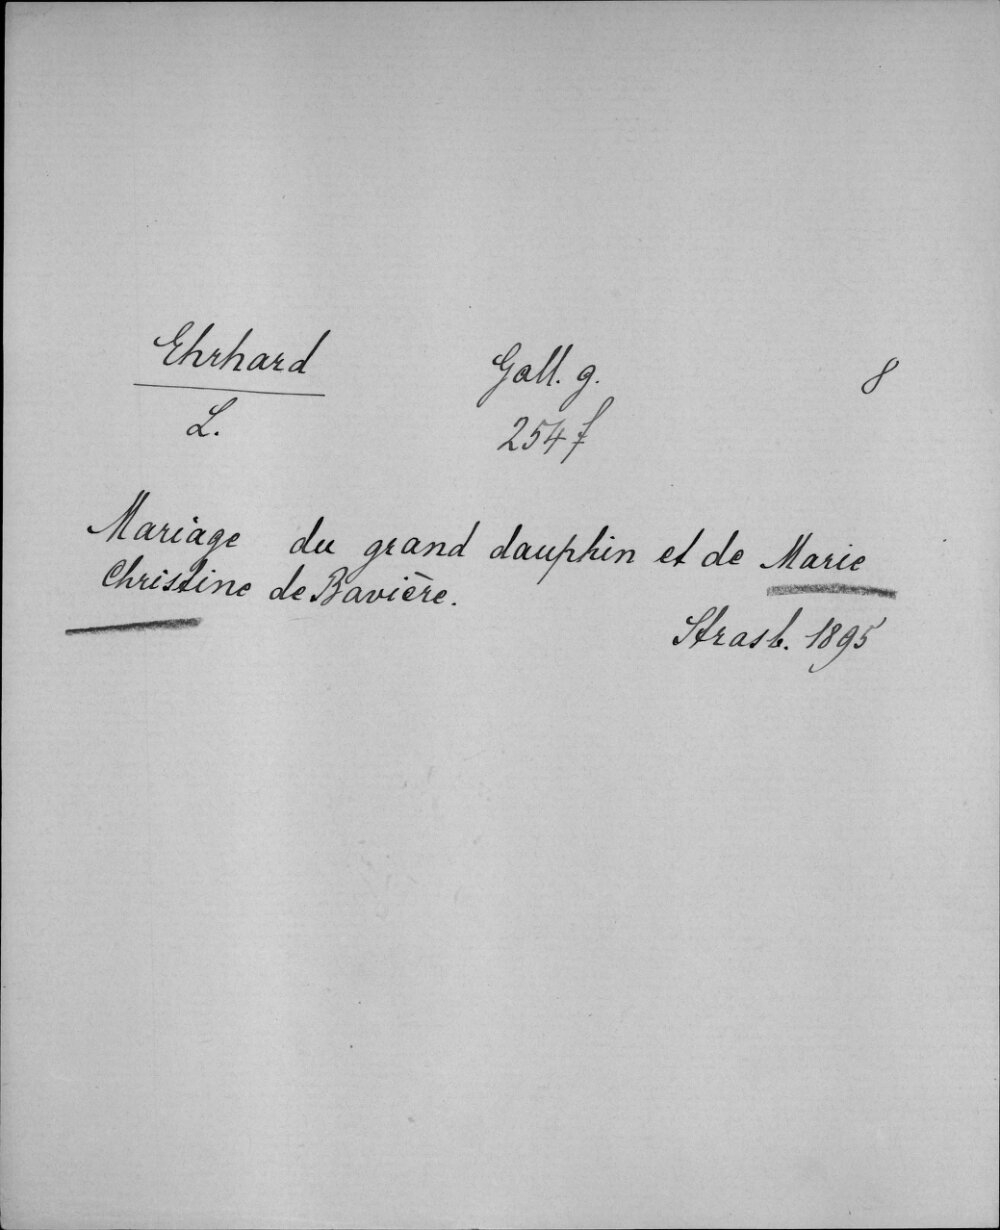 Ehrhard Gall. g. 8
L. 254 f
Mariage du grand dauphin et de Marie
Christine de Bavière.
Strasb. 1895